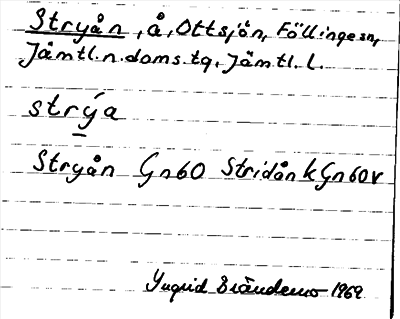 Stryån, å, Ottsjön, Föllinge sn,
Jämtl. n. doms. tg, Jämtl. l.
strýa
Stryån Gn60 Stridån k Gn60v
Ingrid Brändemo 1969